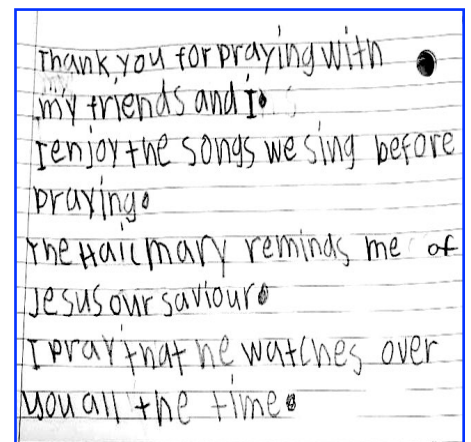 Thank you for praying with
my friends and I.
I enjoy the songs we sing before
praying.
The Hail mary reminds me of
Jesus our saviour.
I pray that he watches over
you all the time.